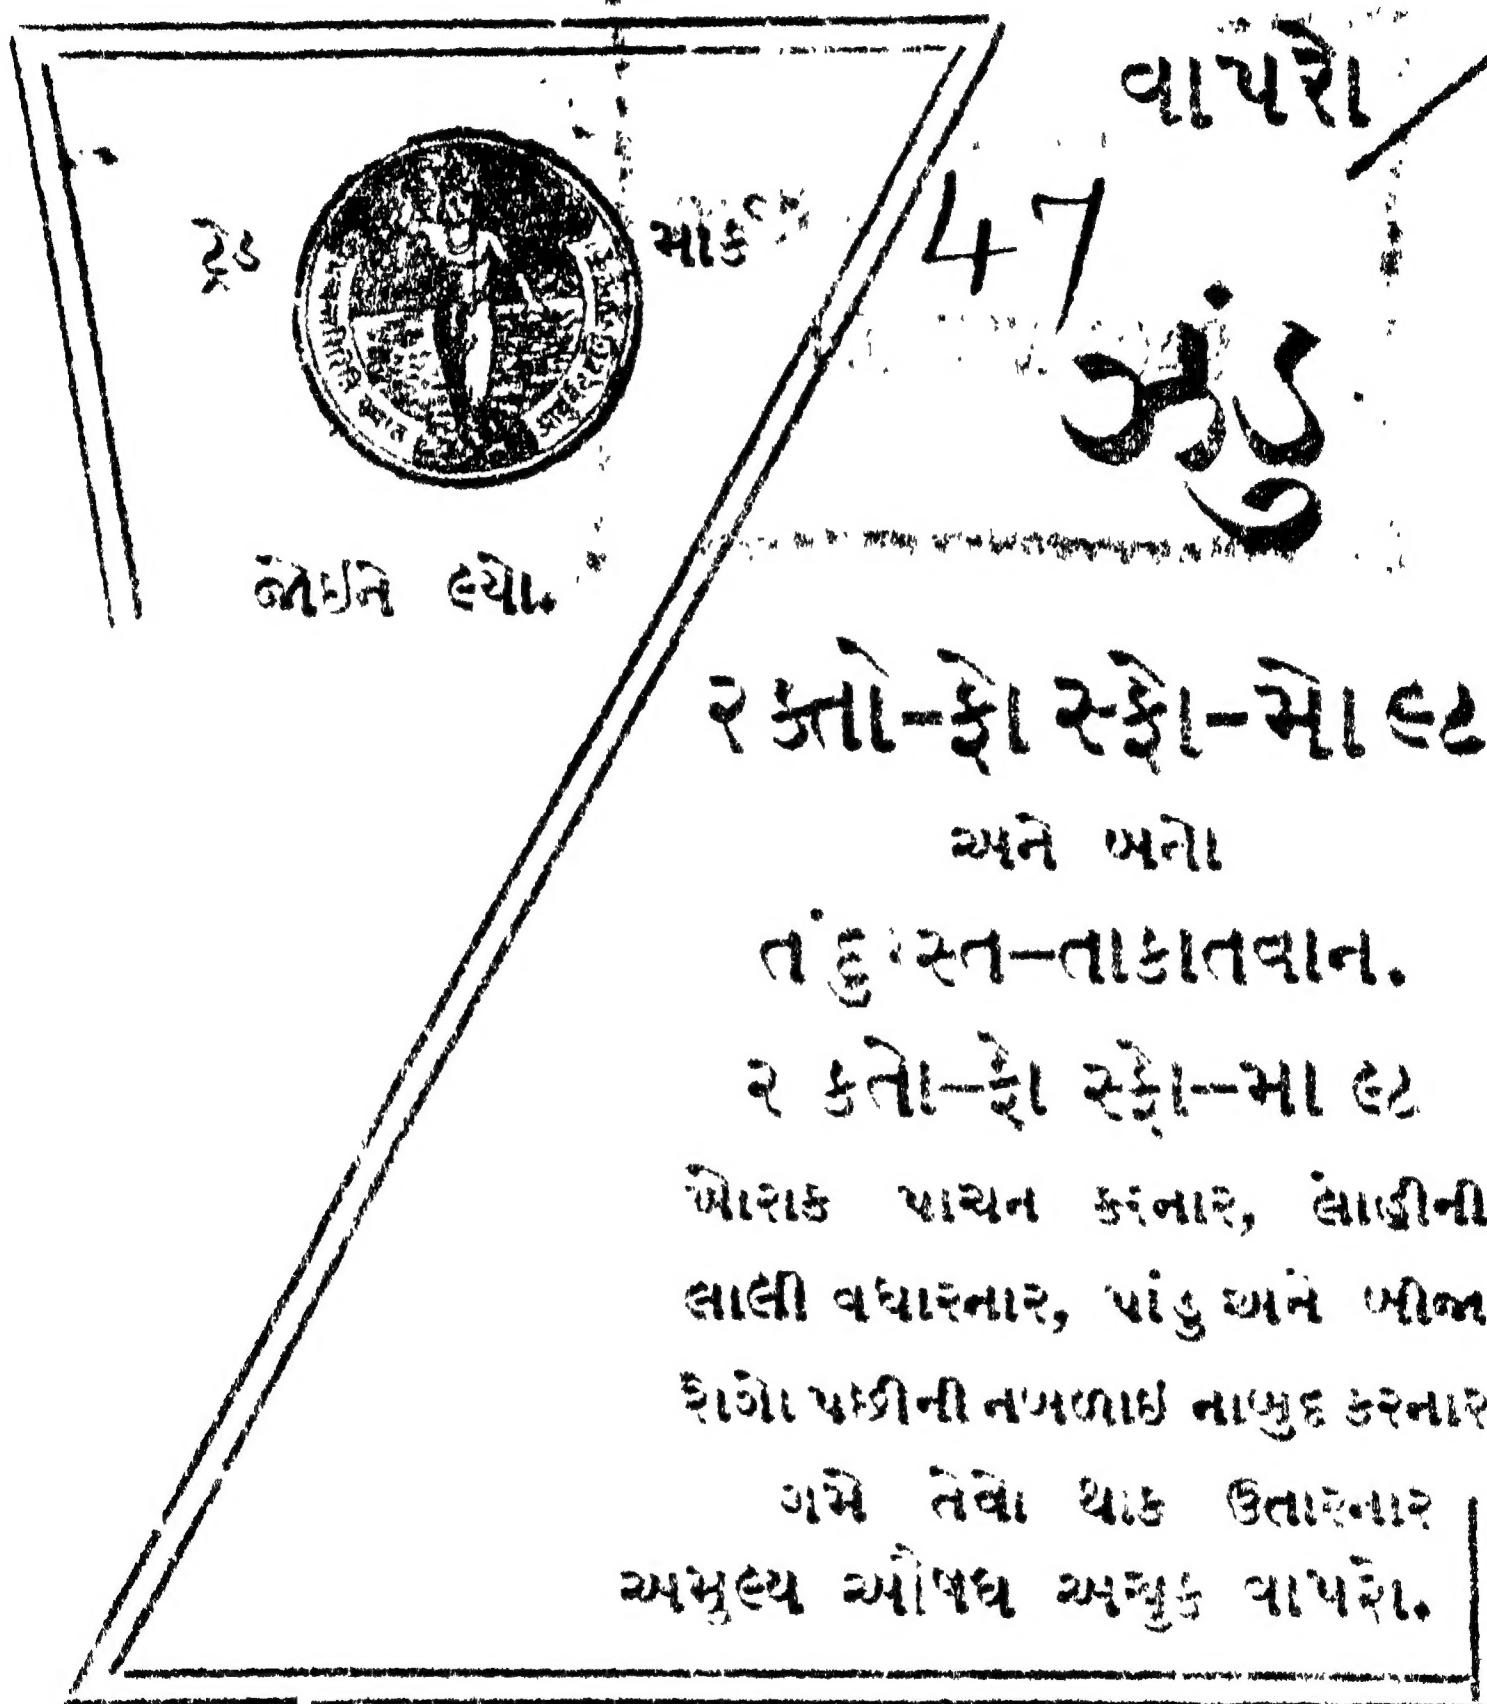 વાપરો
ટ્રેડ માર્ક 47
ઝંડુ
જોઇને લ્યો.
રક્તો-ફોસ્ફો-મોલ્ટ
અને બનો
તંદુરસ્ત-તાકાતવાન.
રકતો-ફોસ્ફો-માલ્ટ
ખોરાક પાચન કરનાર, લોહીની
લાલી વધારનાર, પાંડુ અને બીજા
રોગો પછીની નબળાઇ નાબુદ કરનાર
ગમે તેવો થાક ઉતારનાર
અમુલ્ય ઔષધ અચુક વાપરો.